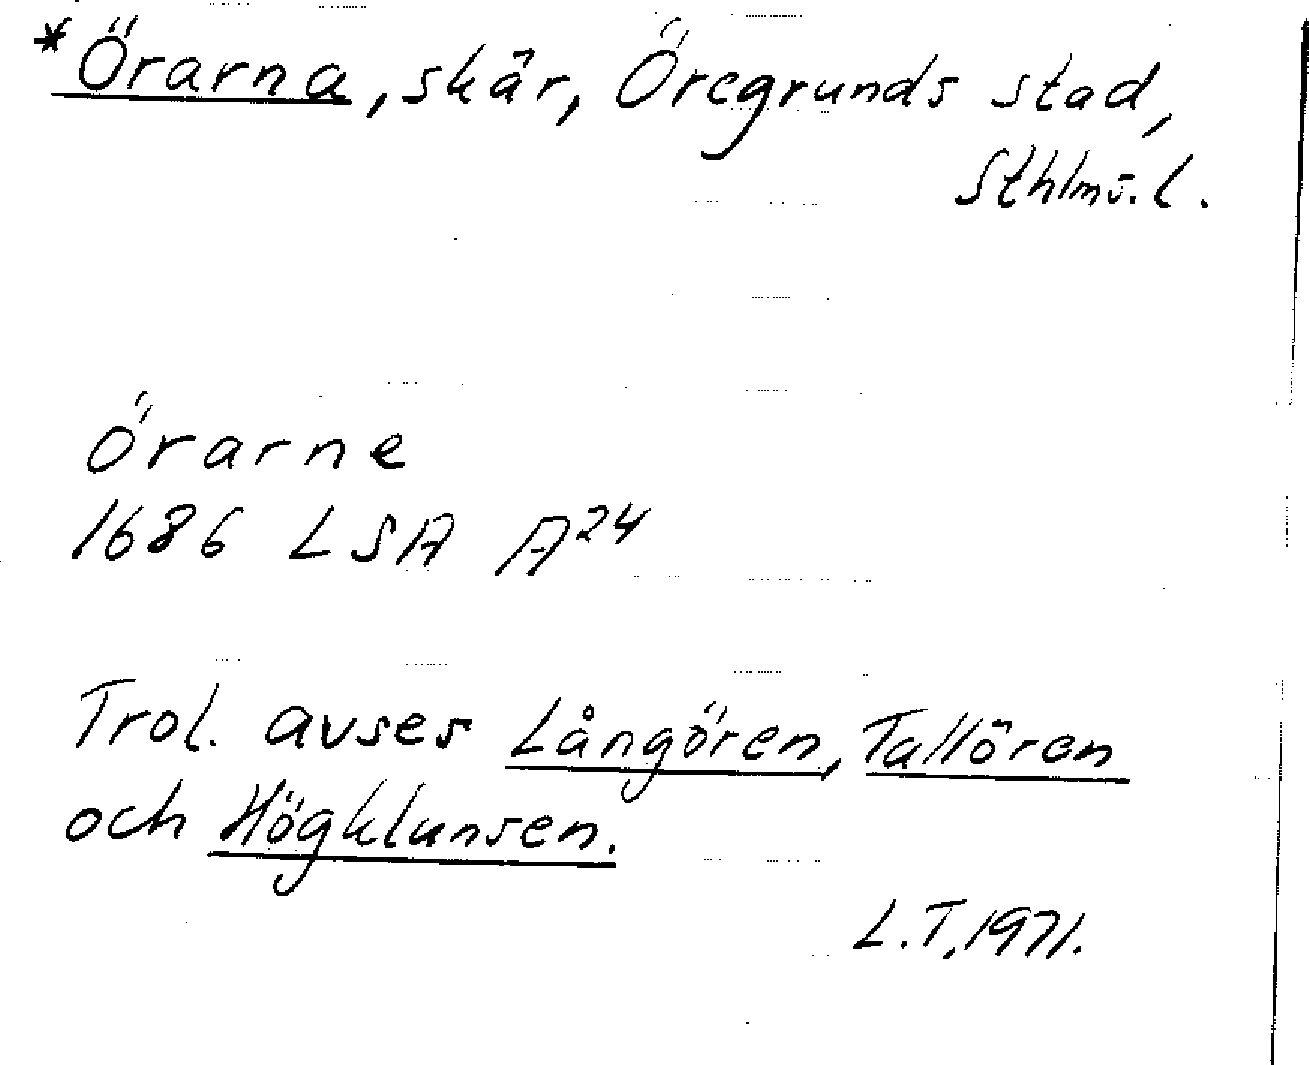 *Örarna, skär, Öregrunds stad,
Sthlms. l.
Örarne
1686 LSA A²⁴
Trol. avses Långören, Tallören
och Högklunsen.
L.T. 1971.